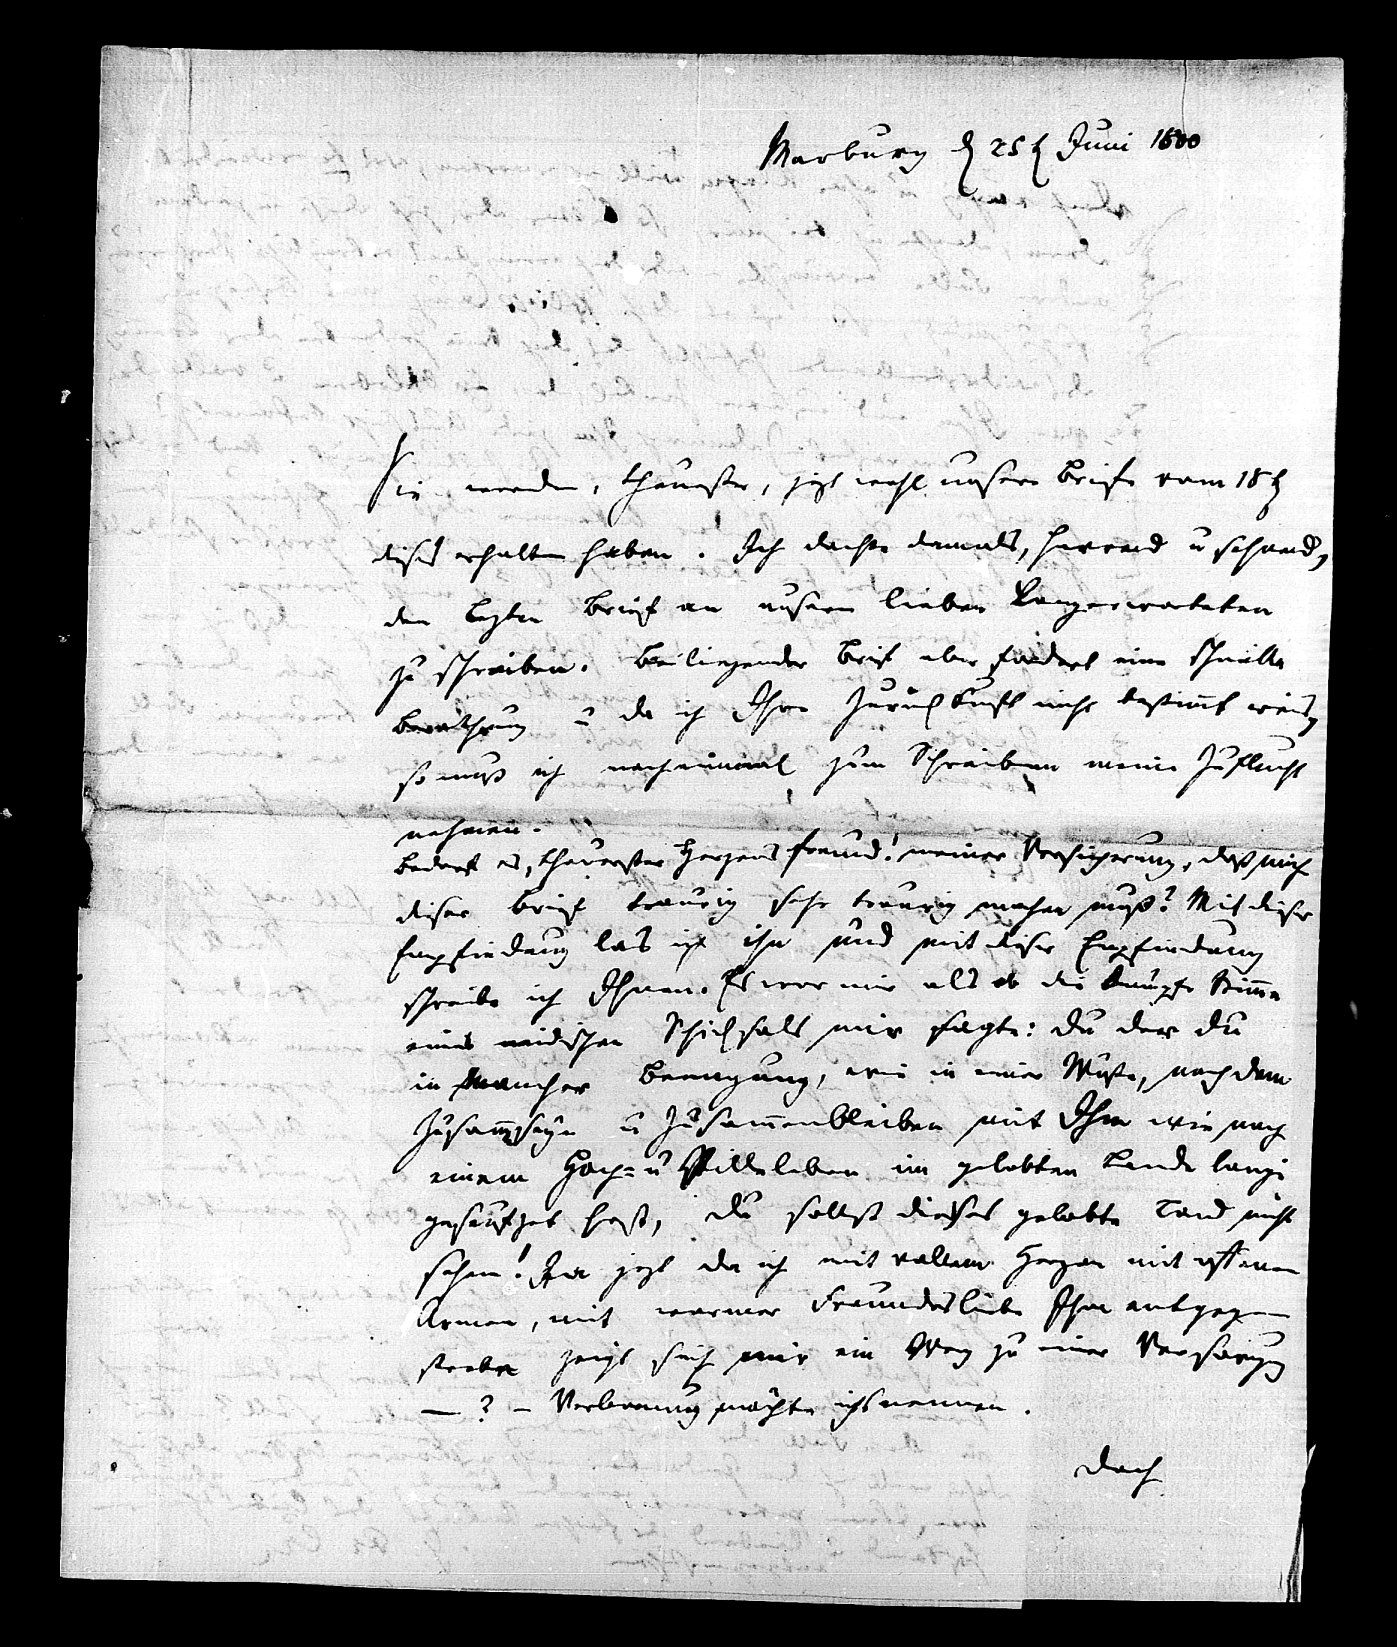 Marburg d 25t Juni 1800
Sie werden, theuerster, jezt wohl unsere Briefe vom 18t
dieses erhalten haben. Ich dachte damals, harrend u sehnend,
den lezten Brief an unsern lieben Langerwarteten
zu schreiben. Beiliegender Brief aber fodert eine schnelle
u da ich Ihre Zurückkunft nicht bestimmt weis,
so muß ich nocheinmal zum Schreiben meine Zuflucht
nehmen.
Bedarf es, theuerster Herzensfreund! meiner Versicherung, daß mich
dieser Brief traurig sehr traurig machen muß? Mit dieser
Empfindung las ich ihn und mit dieser Empfindung
schreibe ich Ihnen. Es war mir als ob die dumpfe Stimme
eines neidischen Schicksals mir sagte: du der du
in mancher Beengung, wie in einer Wüste, nach dem
Zusammenseyn u Zusammenbleiben mit Ihm wie nach
einem Hoch= u Stilleleben im gelobten Lande lange
geseufzet hast, du sollst dieses gelobte Land nicht
sehen! Izt jezt da ich mit vollem Herzen mit offenen
Armen, mit warmer Freundesliebe Ihm entgegen
strebe zeigt sich mir ein Weg zu einer Versorgung
— ? — Verbannung möchte ichs nennen.
Doch